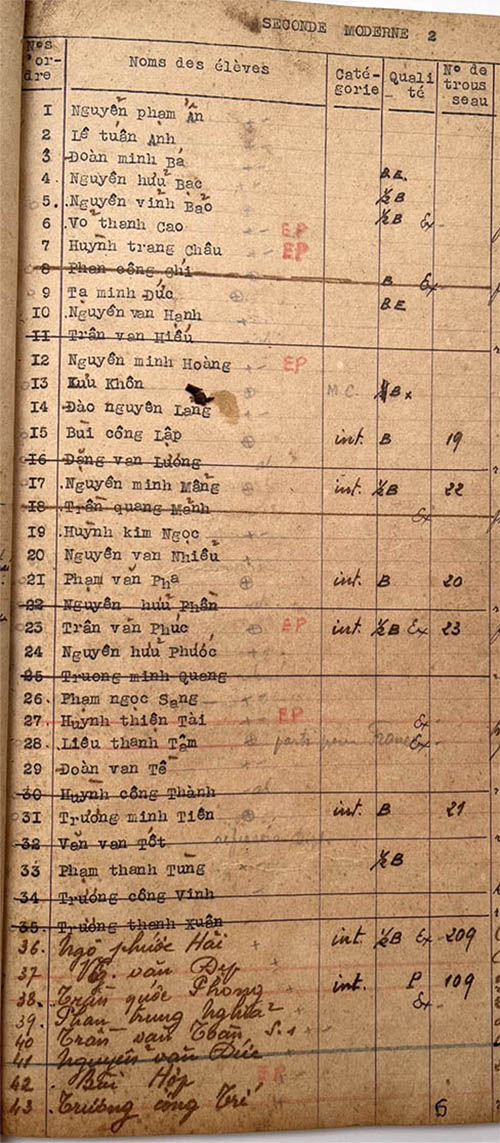 SECONDE MODERNE 2
Nos d'or-dre Noms des élèves Caté-gorie Quali té N° de trous seau
1 Nguyễn phạm Ẩn
2 Lê tuấn Ảnh
3 Đoàn minh Bá
4 Nguyễn hưu Bạc B.E.
5. .Nguyễn vinh Bảo ½B
6 Vỏ thanh Cao EP ½B Ex
7 Huỳnh trang Châu EP
8 Phan công ghi B Ex
9 Tạ minh Đức BE
10 .Nguyễn van Hạnh
11 Trân van Hiếu
12 Nguyễn minh Hoàng EP
13 Lưu Khôn M.C. ½B x
14 Đào nguyên Lạng
15 Bùi công Lập int. B 19
16 Đặng van Lương al
17 .Nguyễn minh Mẫng int. ½B 22
18 .Trần quang Mành Ex
19 .Huỳnh kim Ngọc
20 Nguyễn van Nhiều
21 Phạm văn Phạ int. B 20
22 Nguyễn hưu Phần
23 Trân văn Phúc EP int. ½B Ex 23
24 .Nguyễn hưu Phước
25 Truong minh Quang
26. Phạm ngọc Sạng
27. Huỳnh thiện Tài EP Ex
28. .Liêu thanh Tâm parti pour France Ex
29 Đoàn van Tề
30 Huỳnh công Thành al
31 Trương minh Tiên int. B 21
32 Văn van Tốt
33 Phạm thanh Tùng ½B
34 Trương công Vinh
35. Trương thanh Xuân
36. Ngô phước Hải int. ½B Ex 209
37 Ng. văn Đẹp
38. Trần quốc Phong int. P 109
39. Phan trung Nghĩa Ex
40 Trần văn Toàn S.1
41 Nguyễn văn Đức
42 Bùi Hớp EP
43 Trương công Trí 6